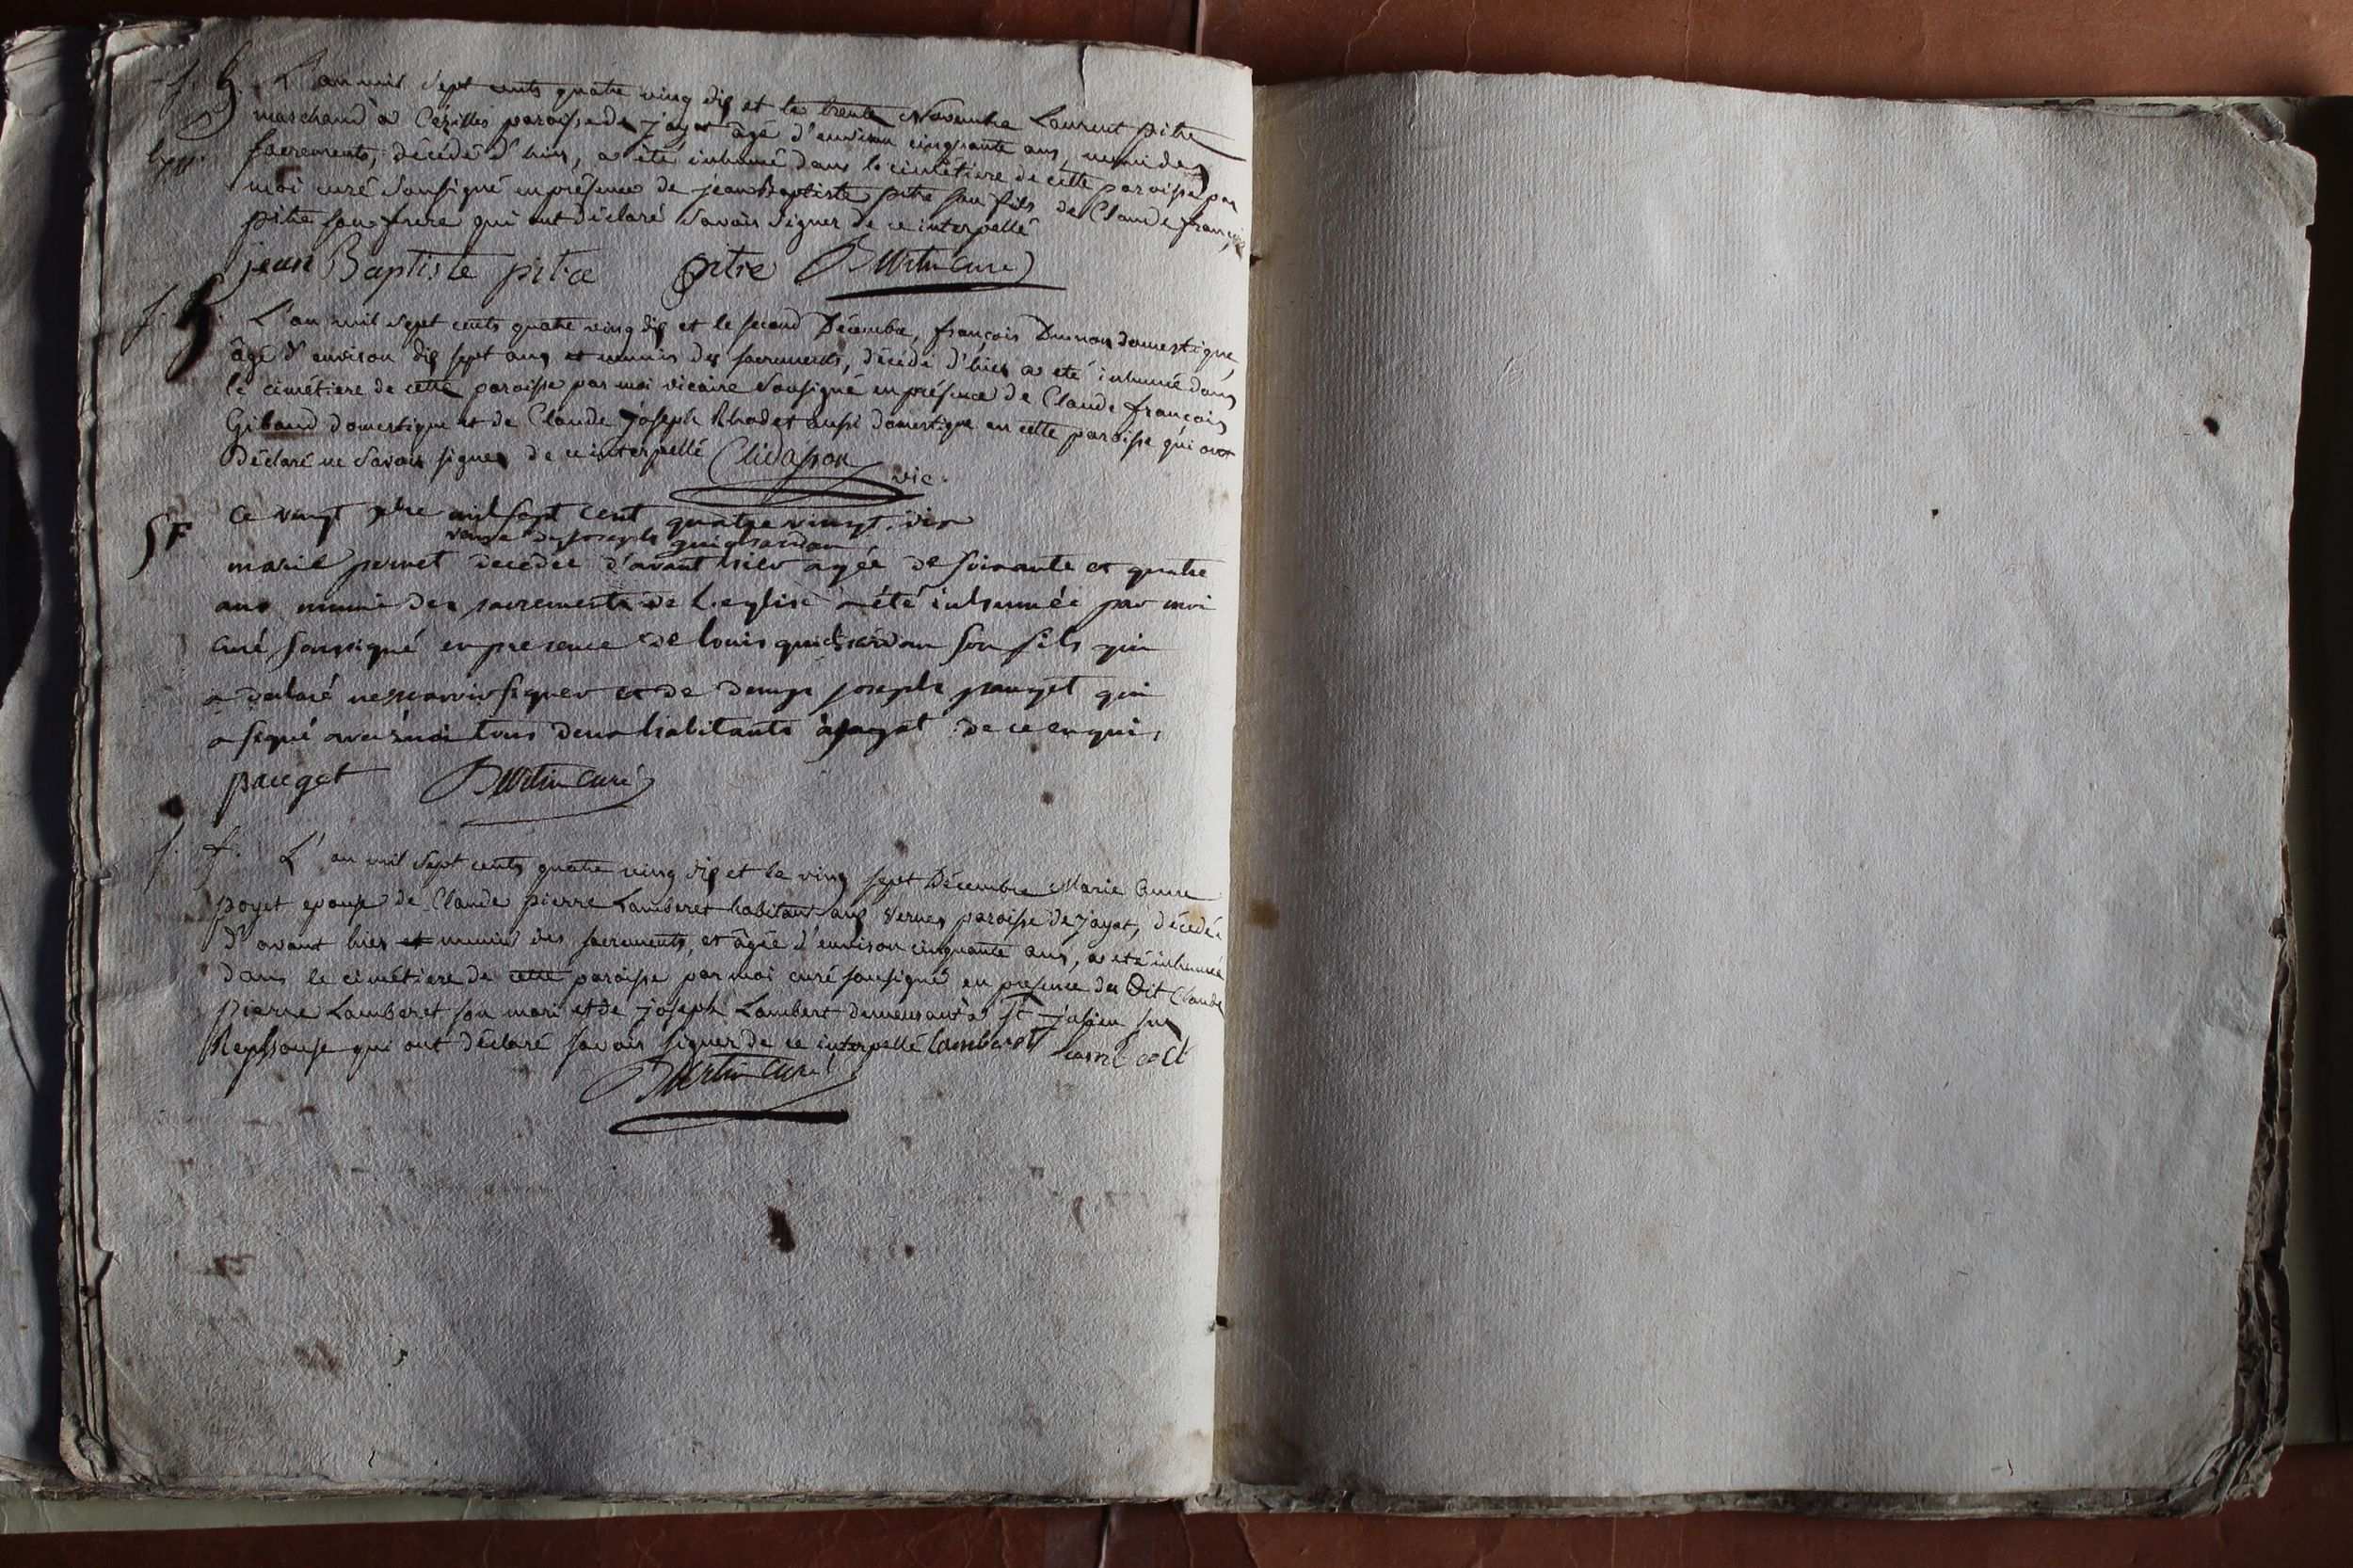 s. h. L'an mil sept cents quatre ving dix et le trente Novembre Laurent pitre
marchand à Cézilles paroisse de jayat âgé d'environ cinquante ans, muni des
sacrements, décédé d'hier, a été inhumé dans le cimetiere de cette paroisse par
moi curé sousigné en présence de jean Baptiste pitre son fils de Claude françois
pitre son frere qui ont déclaré savoir signer de ce interpellé
jean Baptiste pitre pitre Curé
s. h. L'an mil sept cents quatre ving dix et le second Décembre, françois domestique,
âgé d'environ dix sept ans et munis des sacrements, décédé d'hier a été inhumé dans
le cimétiere de cette paroisse par moi vicaire sousigné en présence de Claude françois
Giband domestique et de Claude joseph Rhodet aussi domestique en cette paroisse qui ont
Déclaré ne savoir signer de ce interpellé vic.
SF Ce vingt xbre mil sept cent quatre vingt-dix
veuve de joseph guichardon
marie pernet decedée d'avant hier agée de soixante et quatre
ans munie des sacrements de l'eglise a été inhumée par moi
curé soussigné en presence de louis guichardon son fils qui
a declaré ne scavoir signer et de denys joseph pauget qui
a signé avec moi tous deux habitants à jayat de ce enquis,
pauget curé
s. f. L'an mil sept cents quatre ving dix et le ving sept Décembre Marie Anne
poyet epouse de Claude pierre Lamberet habitant aux vernes paroisse de jayat, décédée
d'avant hier et munie des sacrements, et âgée d'environ cinquante ans, a été inhumée
dans le cimétiere de cette paroisse par moi curé sousigné en présence du Dit Claude
pierre Lamberet son mari et de joseph Lambert demeurant à St julien sur
Reyssouse qui ont déclaré savoir signer de ce interpellé lamberet
curé